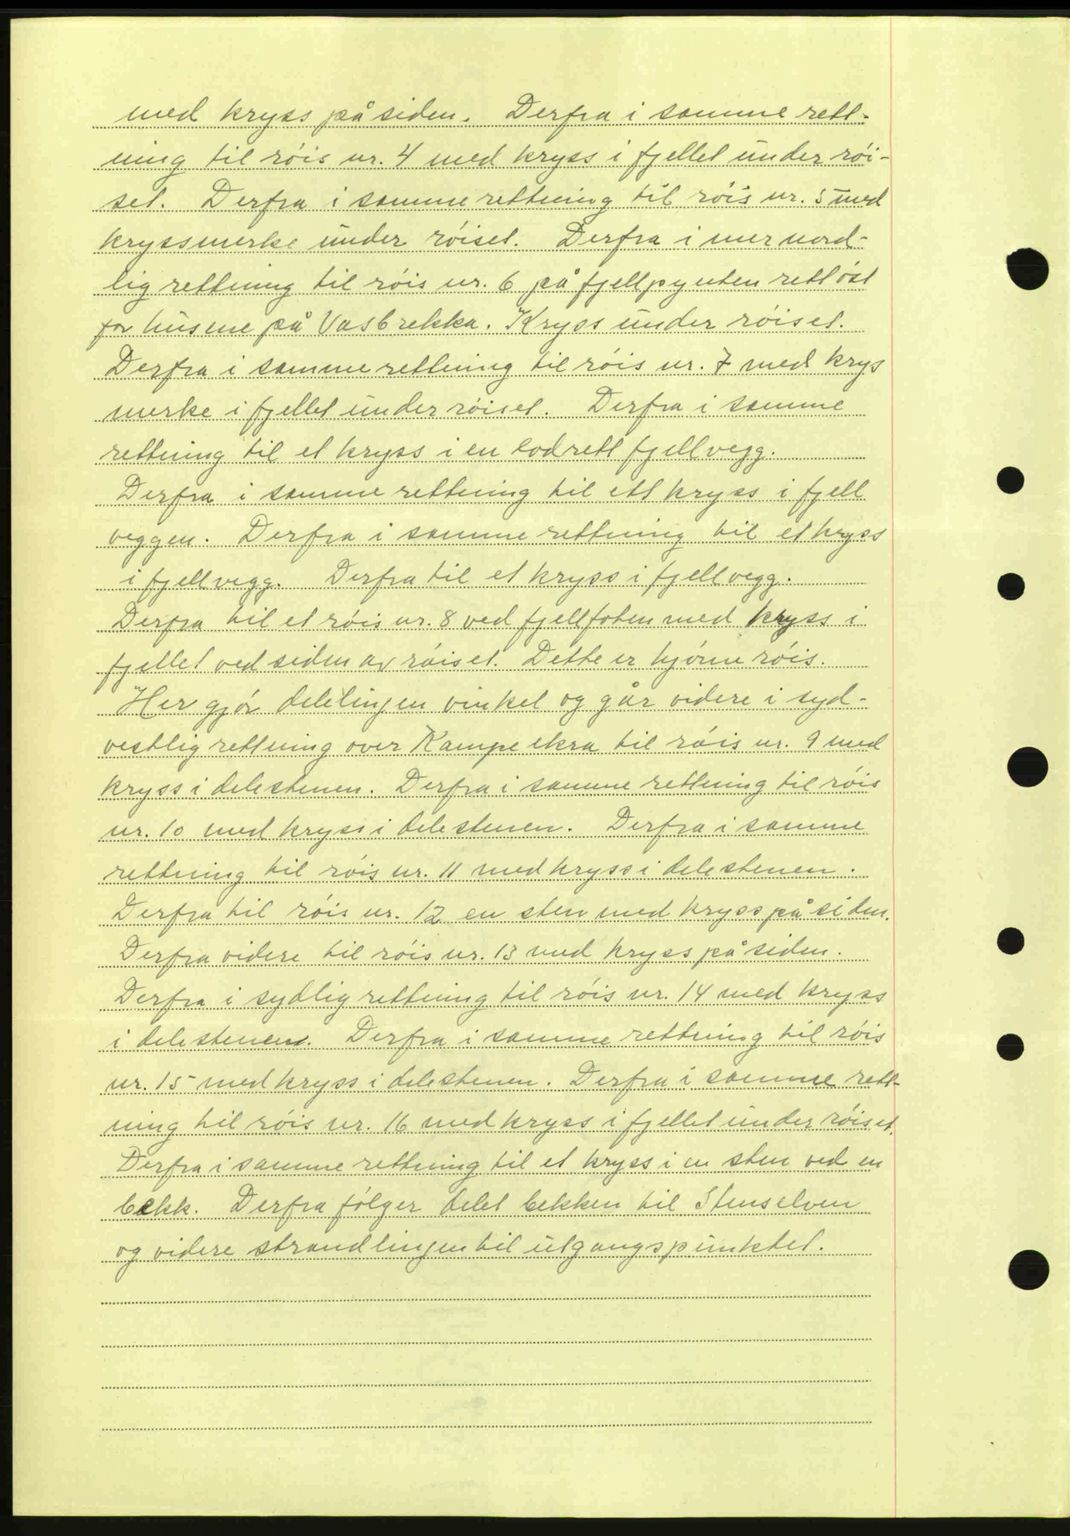 med kryss på siden. Derfra i samme rett-
ning til röis nr. 4 med kryss i fjellet under röi-
set. Derfra i samme rettning til röis nr. 5 med
kryssmerke under röiset. Derfra i mer nord-
lig rettning til röis nr. 6 på fjellpynten rett öst
for husene på Vasbrekka. Kryss under röiset.
Derfra i samme rettning til röis nr. 7 med krys
merke i fjellet under röiset. Derfra i samme
rettning til et kryss i en lodrett fjellvegg.
Derfra i samme rettning til ett kryss i fjell
veggen. Derfra i samme rettning til et kryss
i fjellvegg. Derfra til et kryss i fjellvegg.
Derfra til et röis nr. 8 ved fjellfoten med kryss i
fjellet ved siden av röiset. Dette er hjörne röis.
Her gjör delelinjen vinkel og går videre i syd-
vestlig rettning over Kampeekra til röis nr. 9 med
kryss i delestenen. Derfra i samme rettning til röis
nr. 10 med kryss i delestenen. Derfra i samme
rettning til röis nr. 11 med kryss i delestenen.
Derfra til röis nr. 12 en sten med kryss på siden.
Derfra videre til röis nr. 13 med kryss på siden.
Derfra i sydlig rettning til röis nr. 14 med kryss
i delestenen. Derfra i samme rettning til röis
nr. 15 med kryss i delestenen. Derfra i samme rett-
ning til röis nr. 16 med kryss i fjellet under röiset.
Derfra i samme rettning til et kryss i en sten ved en
bekk. Derfra fölger delet bekken til Stenselven
og videre strandlinjen til utgangspunktet.